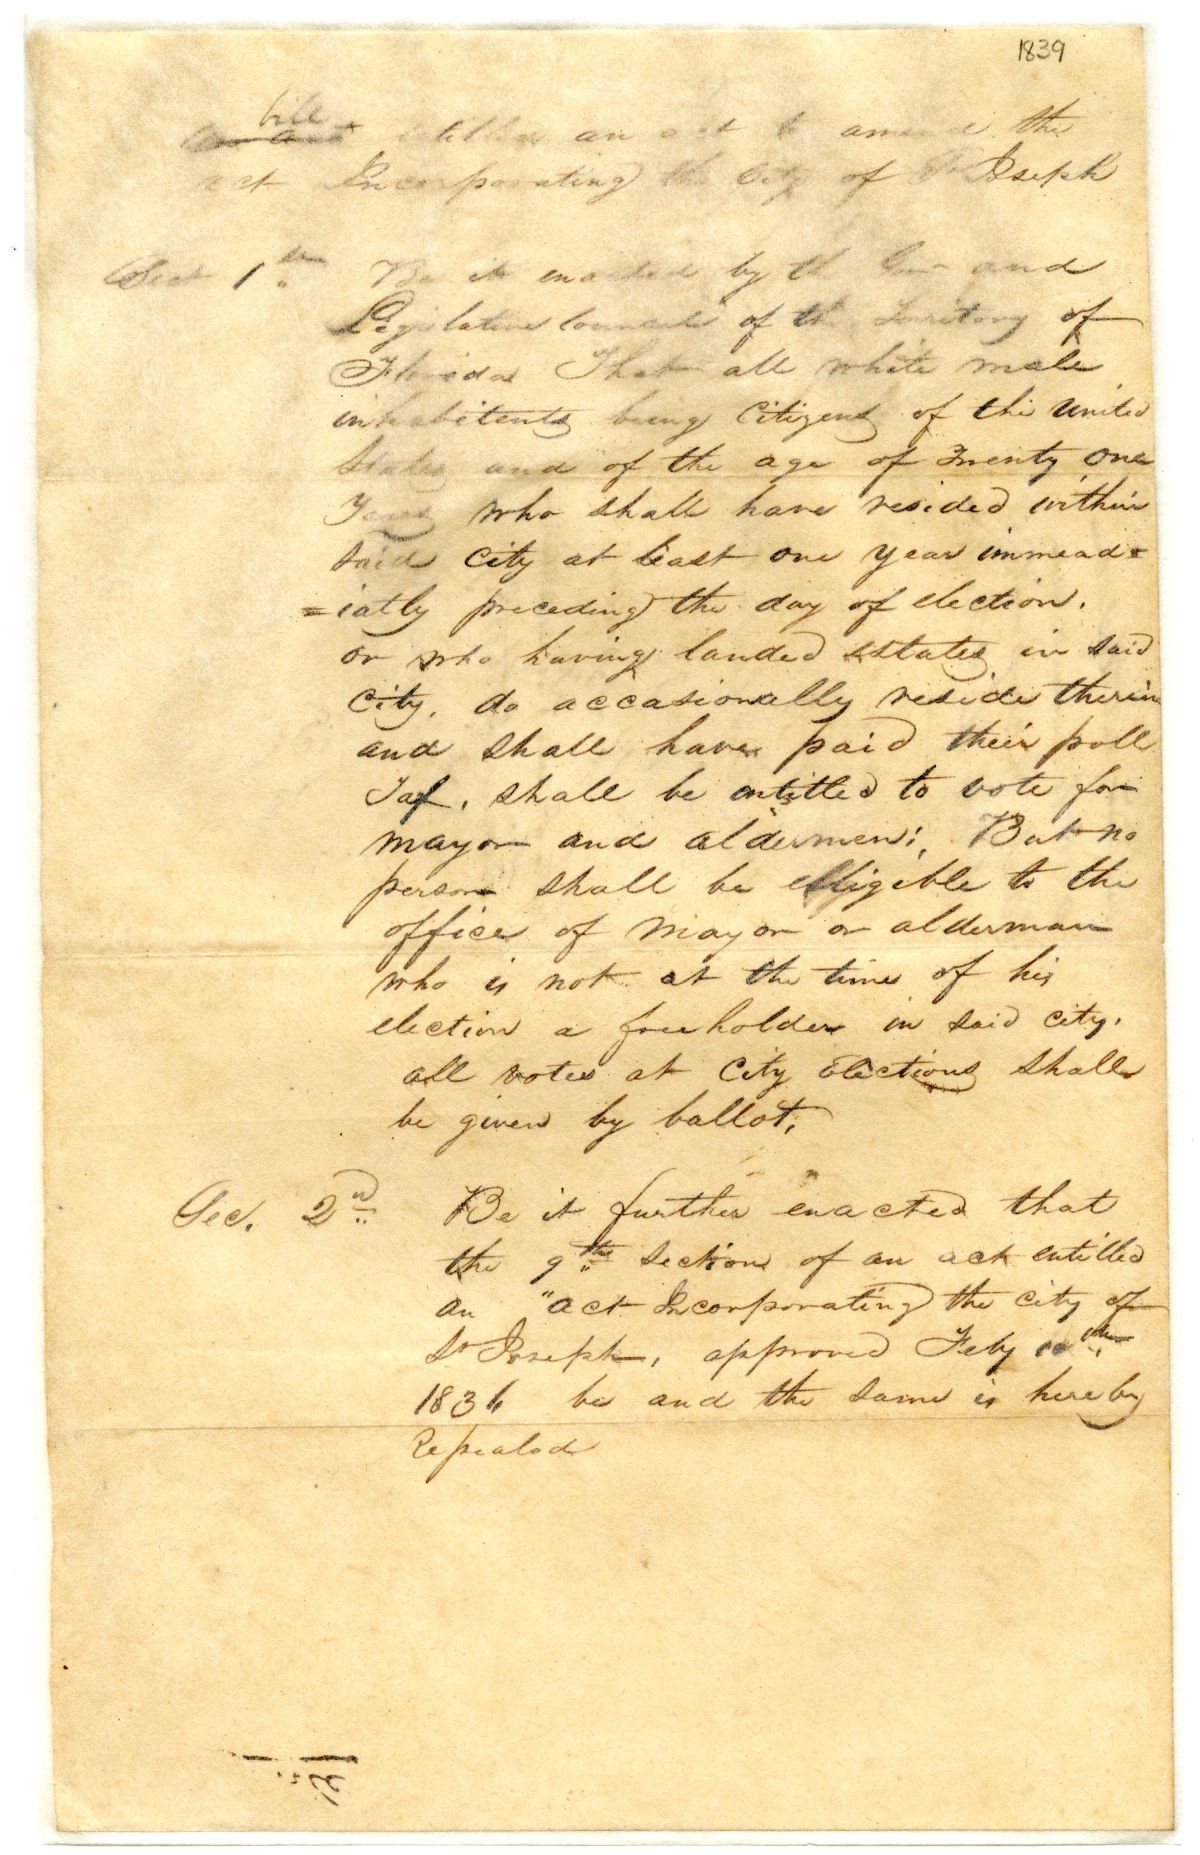 1839
bill
entitled an act to amend the
act Incorporating the City of St Joseph
Sect 1st Be it enacted by the Gov and
Legislative Council of the Territory of
Florida That all white male
inhabitents being Citizens of the United
States and of the age of Twenty one
Years who shall have resided within
said City at least one year immead=
=iatly preceding the day of election.
or who having landed estates in said
City, do accasionally reside therein
and shall have paid their poll
Tax, shall be entitled to vote for
mayor and aldermen; But no
person shall be elligible to the
office of Mayor or alderman
who is not at the time of his
election a freeholder in said city.
all votes at City elections shall
be given by ballot.
Sec. 2nd Be it further enacted that
the 9th section of an act entitled
an "act Incorporating the city of
St Joseph, approved Feby
1836 be and the same is hereby
Repealed